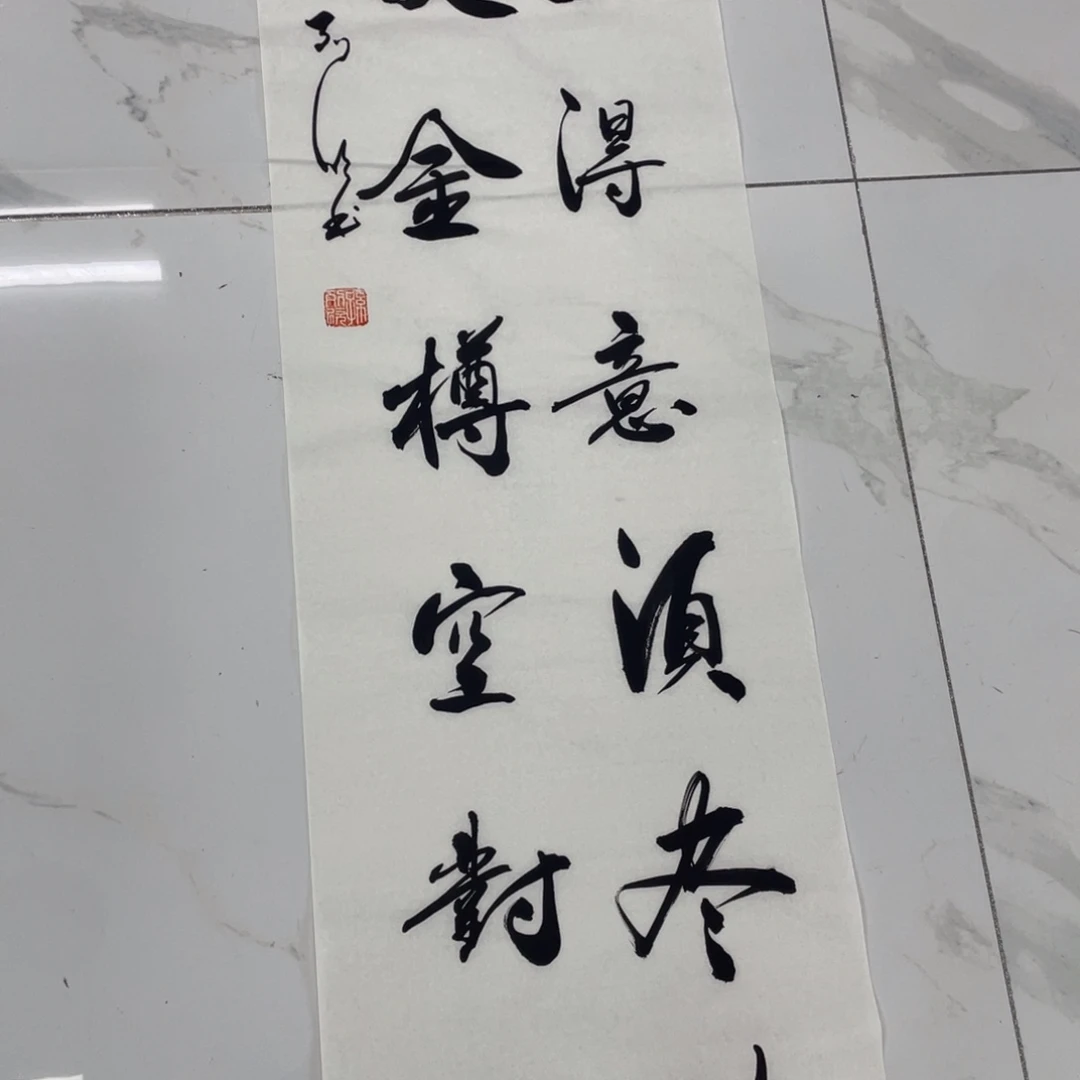 得意須尽
金樽空對